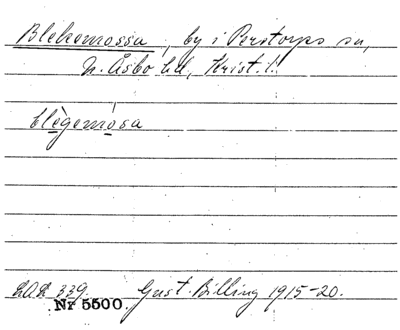 Blekemossa, by i Perstorps sn,
N. Åsbo hd, Krist. l.
blègemósa
LAL 339. Gust. Billing 1915-20.
Nr 5500